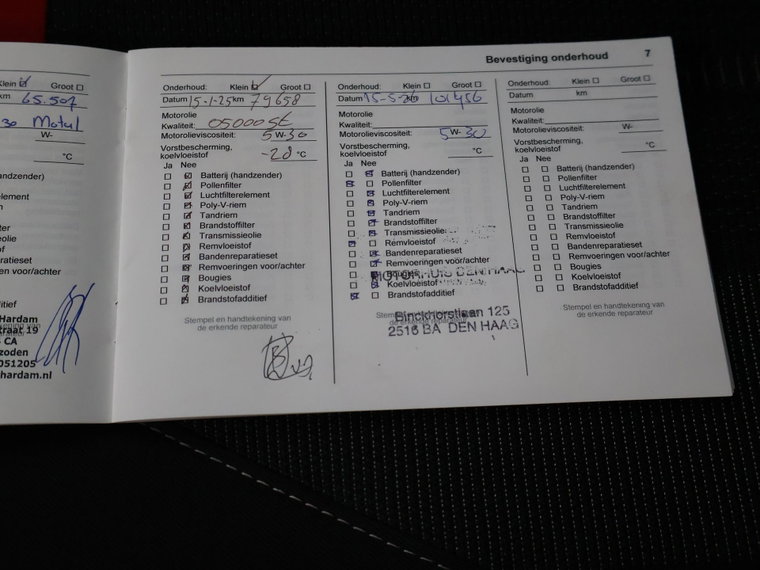 Klein Groot
km 65.507
30 Motul
W-
°C
Hardam
straat 19
CA
zoden
051205
hardam.nl
Bevestiging onderhoud 7
Onderhoud: Klein Groot
Datum 15-1-25 km 79658
Motorolie
Kwaliteit:
Motorolieviscositeit: 5 W-30
Vorstbescherming,
koelvloeistof -28 °C
Ja Nee
Batterij (handzender)
Pollenfilter
Luchtfilterelement
Poly-V-riem
Tandriem
Brandstoffilter
Transmissieolie
Remvloeistof
Bandenreparatieset
Remvoeringen voor/achter
Bougies
Koelvloeistof
Brandstofadditief
Stempel en handtekening van
de erkende reparateur
Onderhoud: Klein Groot
Datum km 101456
Motorolie
Kwaliteit:
Motorolieviscositeit: 5 W- 30
Vorstbescherming,
koelvloeistof °C
Ja Nee
Batterij (handzender)
Pollenfilter
Luchtfilterelement
Poly-V-riem
Tandriem
Brandstoffilter
Transmissieolie
Remvloeistof
Bandenreparatieset
Remvoeringen voor/achter
Bougies
MOTORHUIS DEN HAAG
Koelvloeistof
Brandstofadditief
Stempel en handtekening van
Binckhorstlaan 125
de erkende reparateur
2516 BA DEN HAAG
Onderhoud: Klein Groot
Datum km
Motorolie
Kwaliteit:
Motorolieviscositeit: W-
Vorstbescherming,
koelvloeistof °C
Ja Nee
Batterij (handzender)
Pollenfilter
Luchtfilterelement
Poly-V-riem
Tandriem
Brandstoffilter
Transmissieolie
Remvloeistof
Bandenreparatieset
Remvoeringen voor/achter
Bougies
Koelvloeistof
Brandstofadditief
Stempel en handtekening van
de erkende reparateur